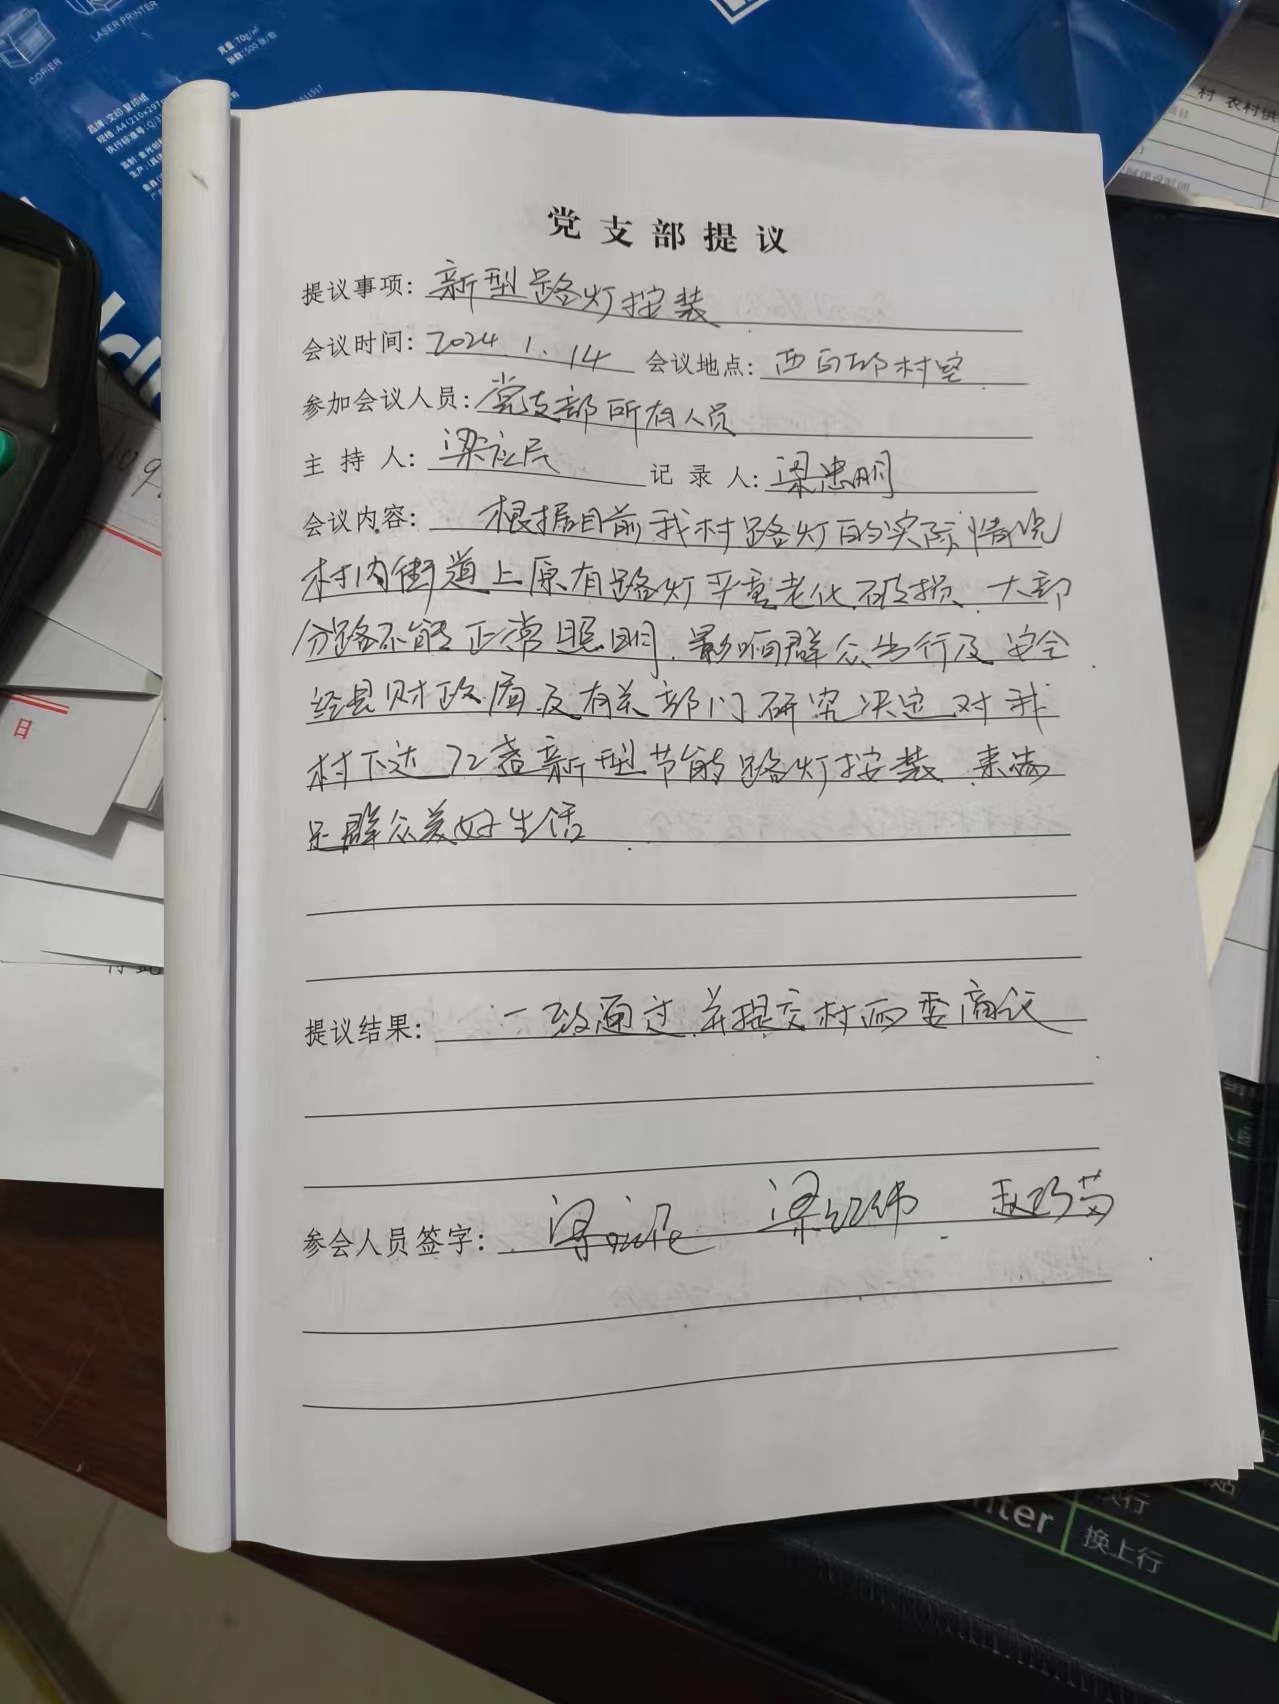 COPIER
LASER PRINTER
克重:70g/㎡
品牌:文印 复印纸
党支部提议
提议事项:新型路灯按装
会议时间:2024.1.14 会议地点:西白邱村室
参加会议人员:党支部所有人员
主持人:梁应民 记录人:梁忠明
会议内容:根据目前我村路灯的实际情况
村内街道上原有路灯严重老化破损、大部
分路不能正常照明.影响群众出行及安全
经县财政局及有关部门研究决定对我
村下达72盏新型节能路灯按装.来满
足群众美好生活.
提议结果:一致通过并提交村两委商议
参会人员签字:
日
村 农村供
建设时间
换行
nter
换上行